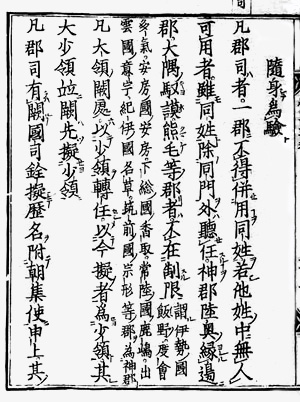 隨身為驗
凡郡司者一郡不得併用同姓若他姓中無人
可用者雖同姓除同門外聽任神郡陸奧縁邊
郡大隅馭謨熊毛等郡者不在制限
謂伊勢國
飯野度會
多氣安房國安房下総國香取常陸國鹿嶋出
雲國意宇紀伊國名草筑前國宗形等郡為神郡
凡大領闕處以少領轉任以今擬者為少領其
大少領並闕先擬少領
凡郡司有闕國司銓擬歴名附朝集使申上其